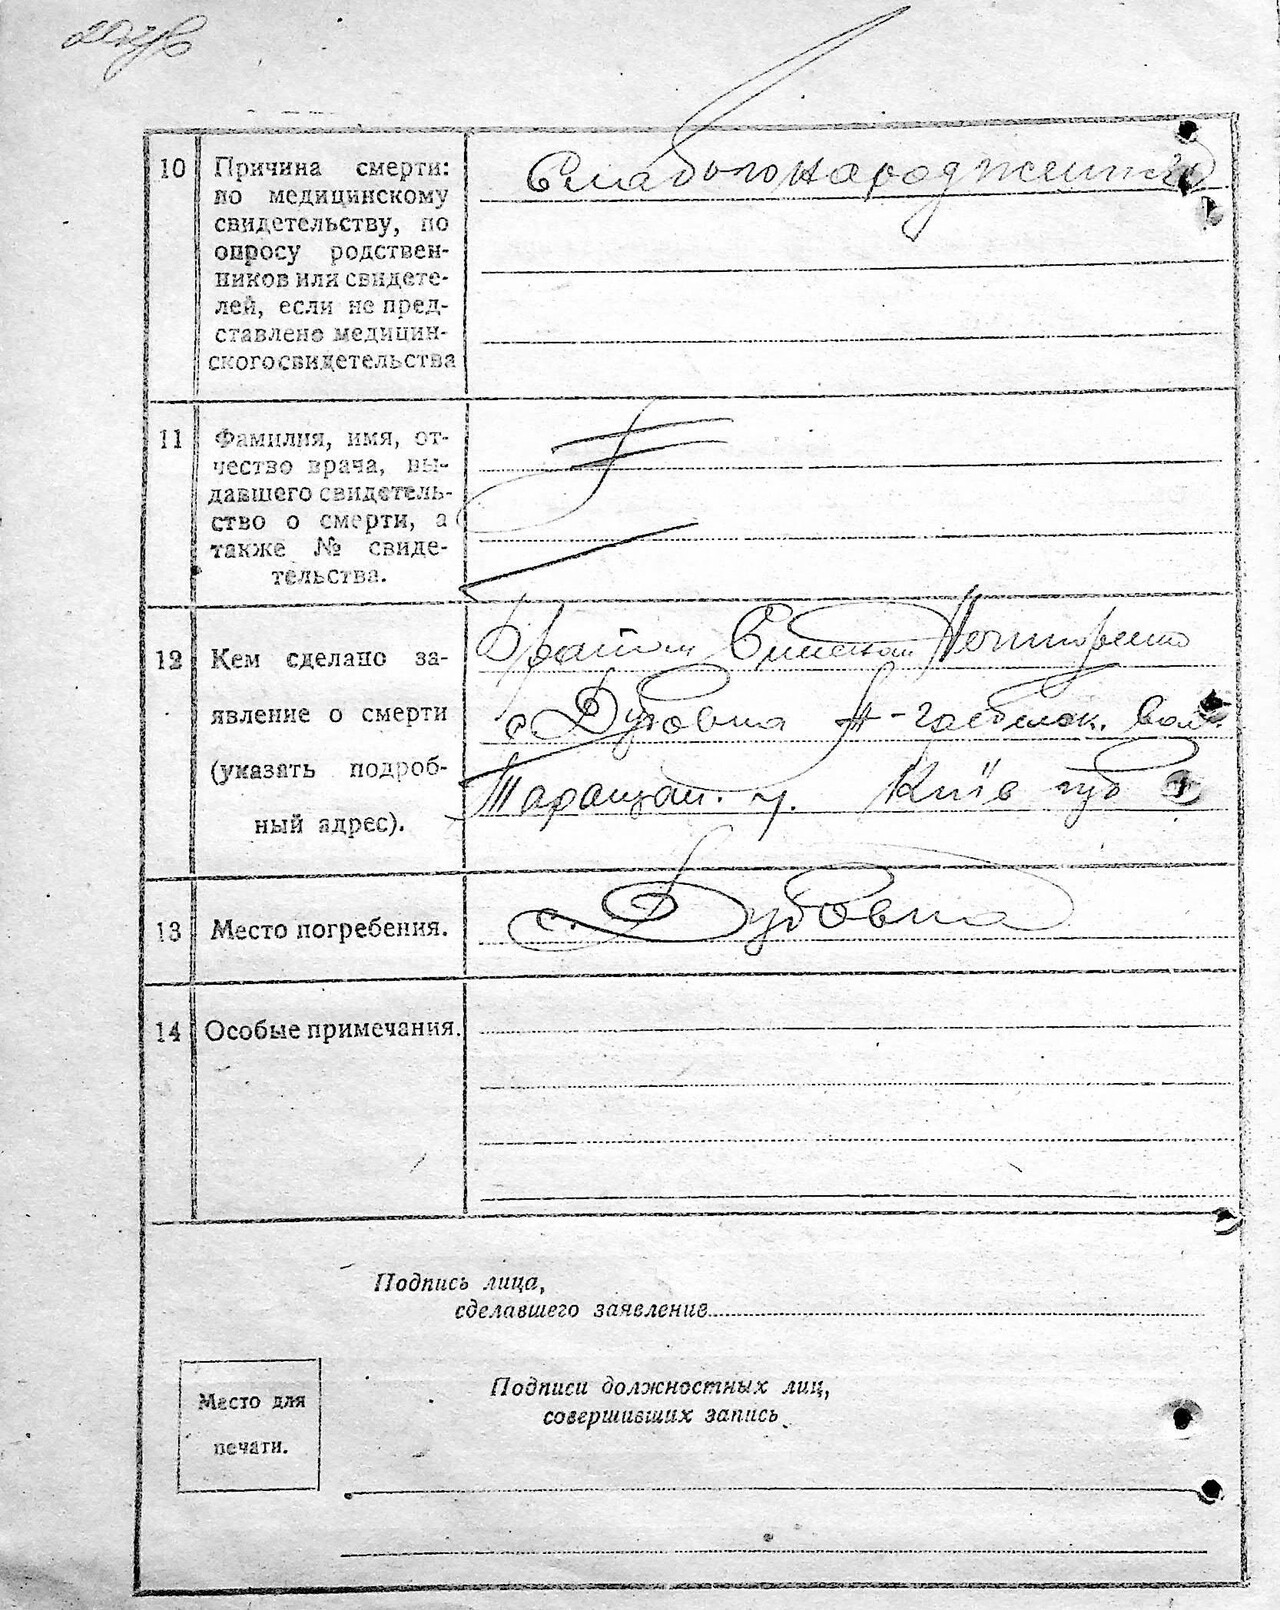 10
Причина смерти:
по медицинскому
свидетельству, по
опросу родствен-
ников или свидете-
лей, если не пред-
ставлено медицин-
ского свидетельства
Слабого народження
11
Фамилия, имя, от-
чество врача, вы-
давшего свидетель-
ство о смерти, а
также № свиде-
тельства.
12
Кем сделано за-
явление о смерти
(указать подроб-
ный адрес).
Братом
с Дубовка вол.
Таращан. у. Київ губ
13
Место погребения.
с. Дубовка
14
Особые примечания.
Подпись лица,
сделавшего заявление
Место для
печати.
Подписи должностных лиц,
совершивших запись